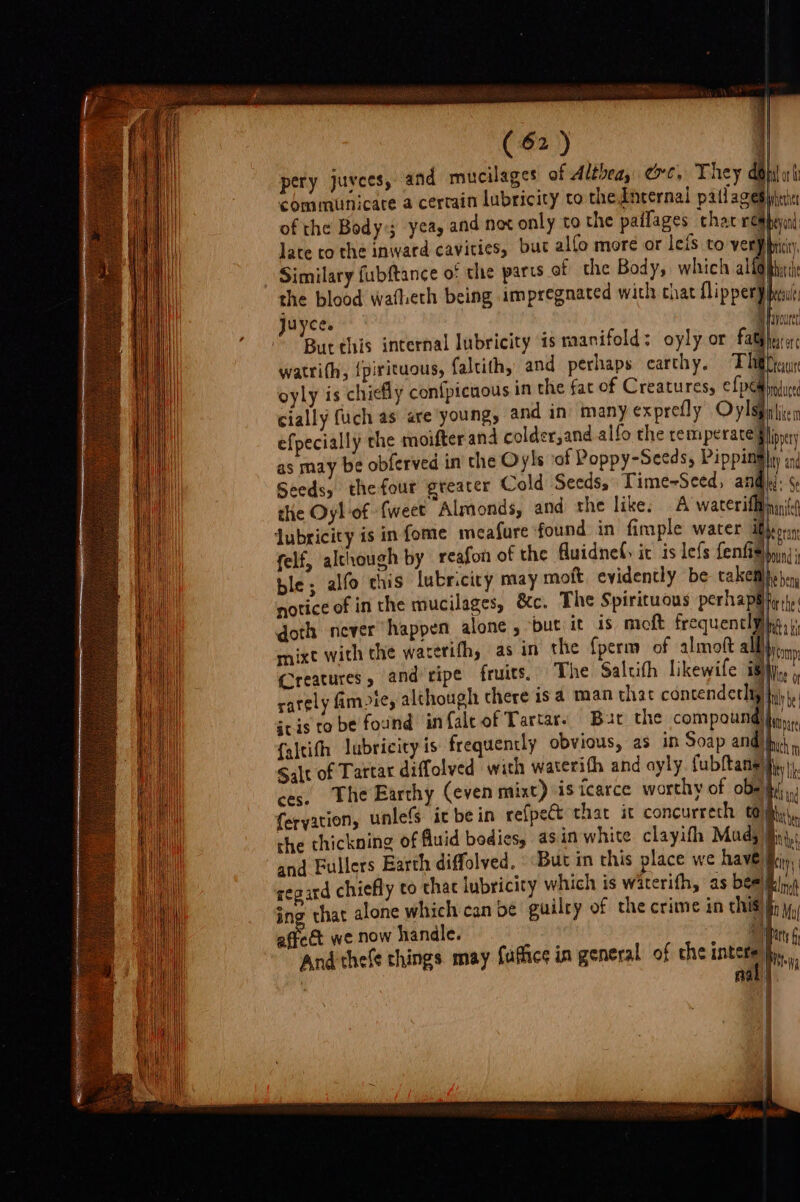 ( 62 )
pery juyces, and mucilages of Altheas &c. They do
communicate a certain lubricity to the Internal passages
of the Body; yea, and not only to the passages that re-
late to the inward cavities, but also more or less to very
Similary substance of the parts of the Body, which also
the blood washeth being impregnated with that slippery
juyce.
But this internal lubricity is manifold: oyly or fat,
watrish, spirituous, saltish, and perhaps earthy. The
oyly is chiefly conspicuous in the fat of Creatures, espe-
cially such as are young, and in many expresly Oyls,
especially the moister and colder, and also the temperate,
as may be observed in the Oyls of Poppy-Seeds, Pippin-
Seeds, the four greater Cold Seeds, Time-Seed, and
the Oyl of sweet Almonds, and the like. A waterish
lubricity is in some measure found in simple water it
self, although by reason of the fluidness it is less sensi-
ble; also this lubricity may most evidently be taken
notice of in the mucilages, &c. The Spirituous perhaps
doth never happen alone, but it is most frequently
mixt with the waterish, as in the sperm of almost all
Creatures, and ripe fruits. The Saltish likewise is
rarely simple, although there is a man that contendeth
it is to be found in salt of Tartar. But the compound
saltish lubricity is frequently obvious, as in Soap and
Salt of Tartar dissolved with waterish and oyly substan-
ces. The Earthy (even mixt) is scarce worthy of ob-
servation, unless it be in respect that it concurreth to
the thickning of fluid bodies, as in white clayish Mud,
and Fullers Earth dissolved. But in this place we have
regard chiefly to that lubricity which is waterish, as be-
ing that alone which can be guilty of the crime in this
affect we now handle.
And these things may suffice in general of the inter-
nal